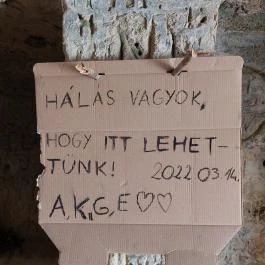 HÁLÁS VAGYOK,
HOGY ITT LEHET-
TÜNK! 2022 03.14.
A, K, G, E ♡♡